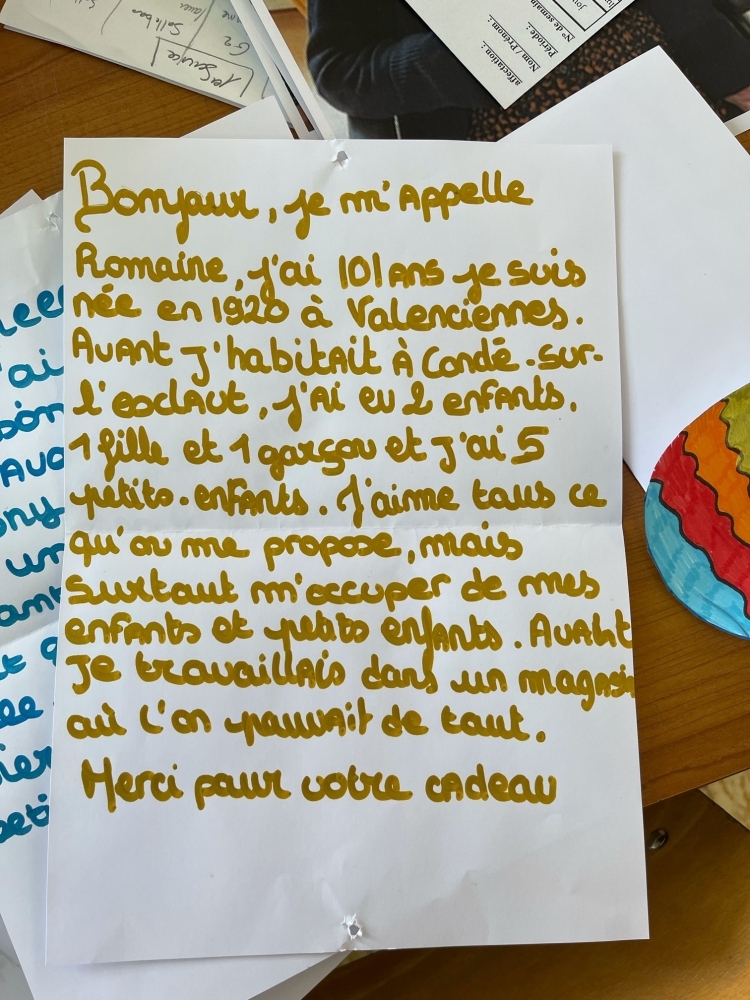 Service
G2
Sallebon
affectation :
Nom / Prénom :
Période :
N° de semaine
Bonjour, je m'Appelle
Romaine, j'ai 101 ANS je suis
née en 1920 à Valenciennes.
AvANT J'habitAit À Condé.sur-
l'esclAut, j'Ai eu 2 enfAnts.
1 fille et 1 garçon et J'ai 5
petits-enfAnts. J'aime tous ce
qu'on me propose, mais
surtout m'occuper de mes
enfAnts et petits enfAnts. AvAnt
Je travaillAis dans un magasin
où l'on pouvait de tout.
Merci pour votre cAdeau